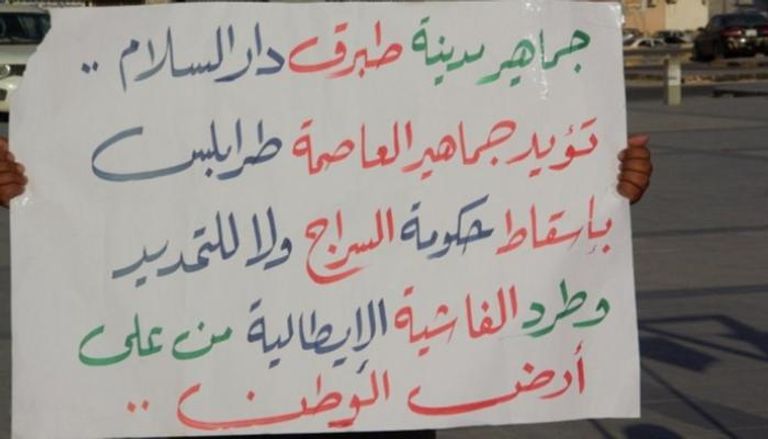 جماهير مدينة طبرق دار السلام ..
تؤيد جماهير العاصمة طرابلس
بإسقاط حكومة السراج ولا للتمديد
وطرد الفاشية الإيطالية من على
أرض الوطن ..